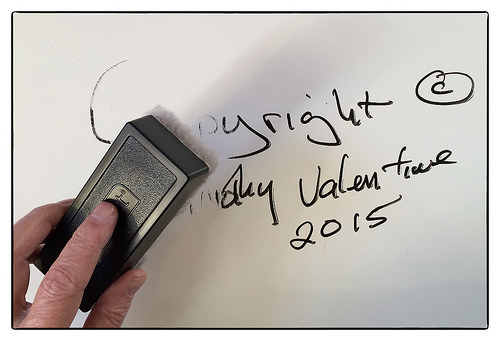 Copyright ©
Valentine
2015